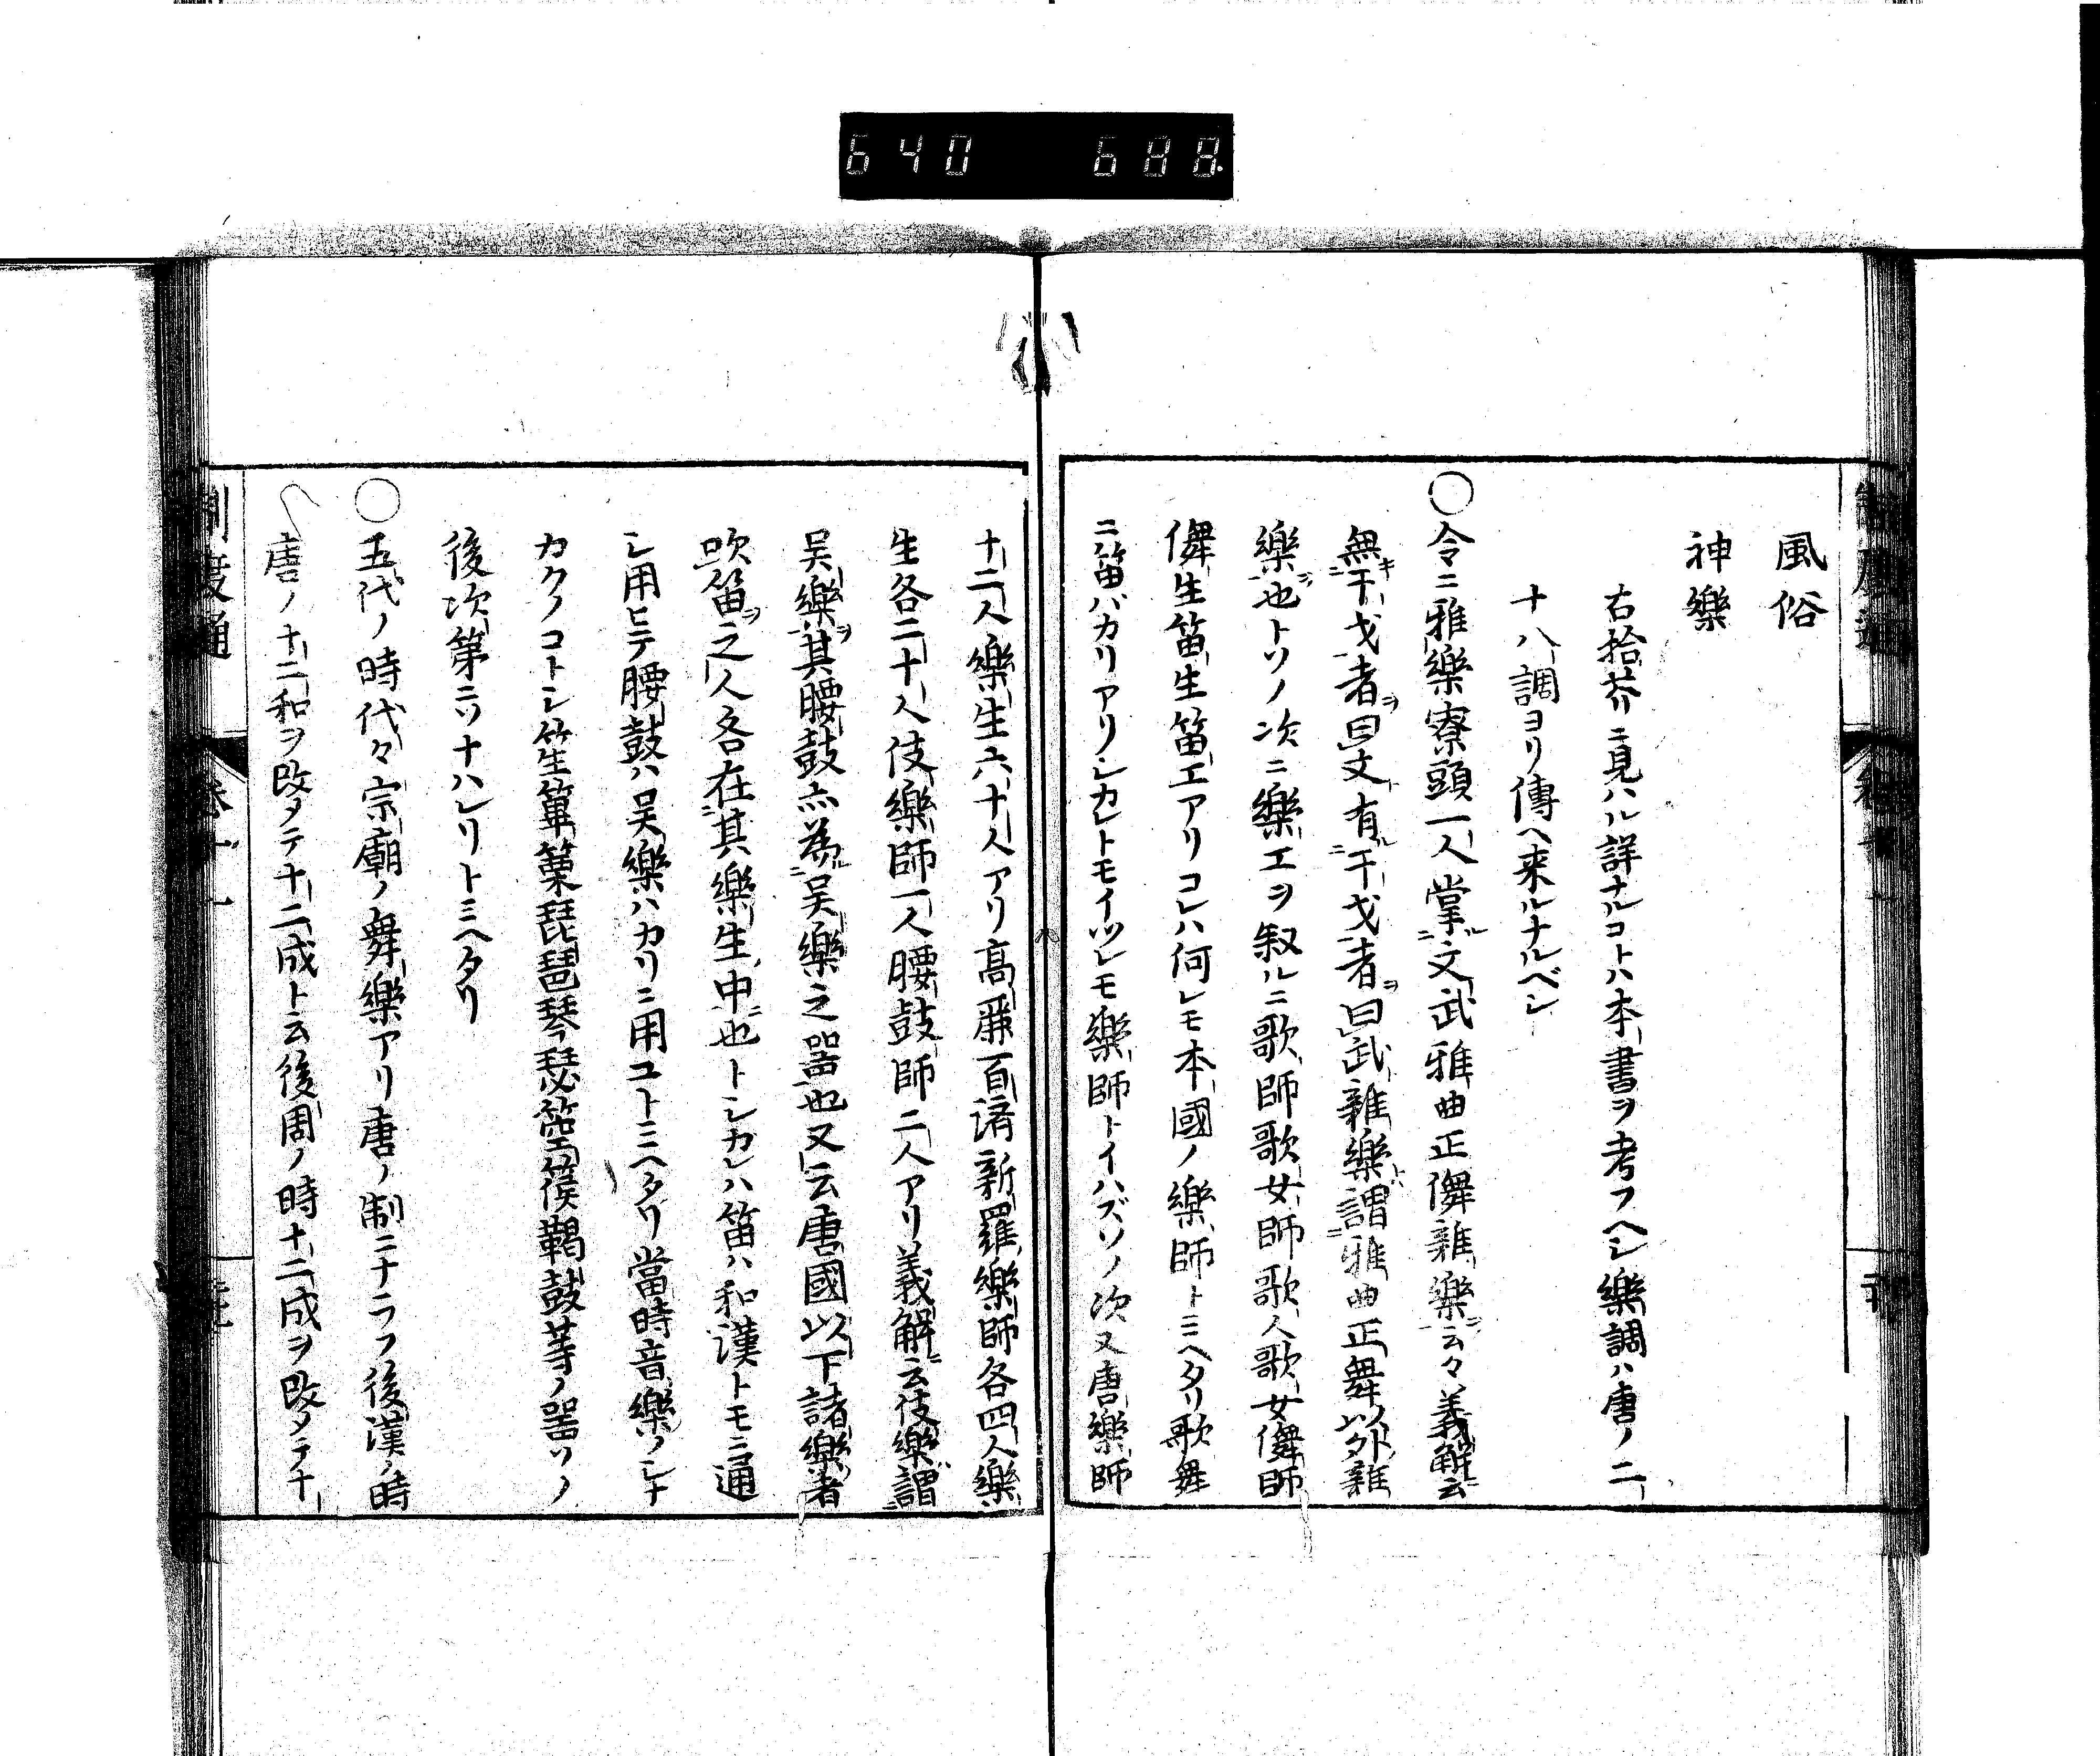 640 688
風俗
神樂
右拾芥ニ見ハル詳ナルコトハ本書ヲ考フヘシ樂調ハ唐ノ二
十八調ヨリ傳ヘ来ルナルベシ
○令ニ雅樂寮頭一人掌文武雅曲正儛雜樂云々義解云
無干戈者曰文有干戈者曰武雜樂謂雅曲正舞以外雜
樂也トソノ次ニ樂工ヲ叙ルニ歌師歌女師歌人歌女儛師
儛生笛生笛工アリコレハ何レモ本國ノ樂師トミヘタリ歌舞
ニ笛バカリアリシカレトモイツレモ樂師トイハズソノ次又唐樂師
十二人樂生六十人アリ高麗百濟新羅樂師各四人樂
生各二十人伎樂師一人腰鼓師二人アリ義解云伎樂謂
吴樂其腰鼓亦為吴樂之噐也又云唐國以下諸樂者
吹笛之人各在其樂生中也トシカレハ笛ハ和漢トモニ通
シ用ヒテ腰鼓ハ吴樂ハカリニ用コトミヘタリ當時音樂ノシナ
カクノコトシ笙篳篥琵琶琴瑟箜篌鞨鼓等ノ噐ソノ
後次第ニソナハレリトミヘタリ
○五代ノ時代々宗廟ノ舞樂アリ唐ノ制ニナラフ後漢ノ時
唐ノ十二和ヲ改メテ十二成ト云後周ノ時十二成ヲ改メテ十
制度通 卷十一